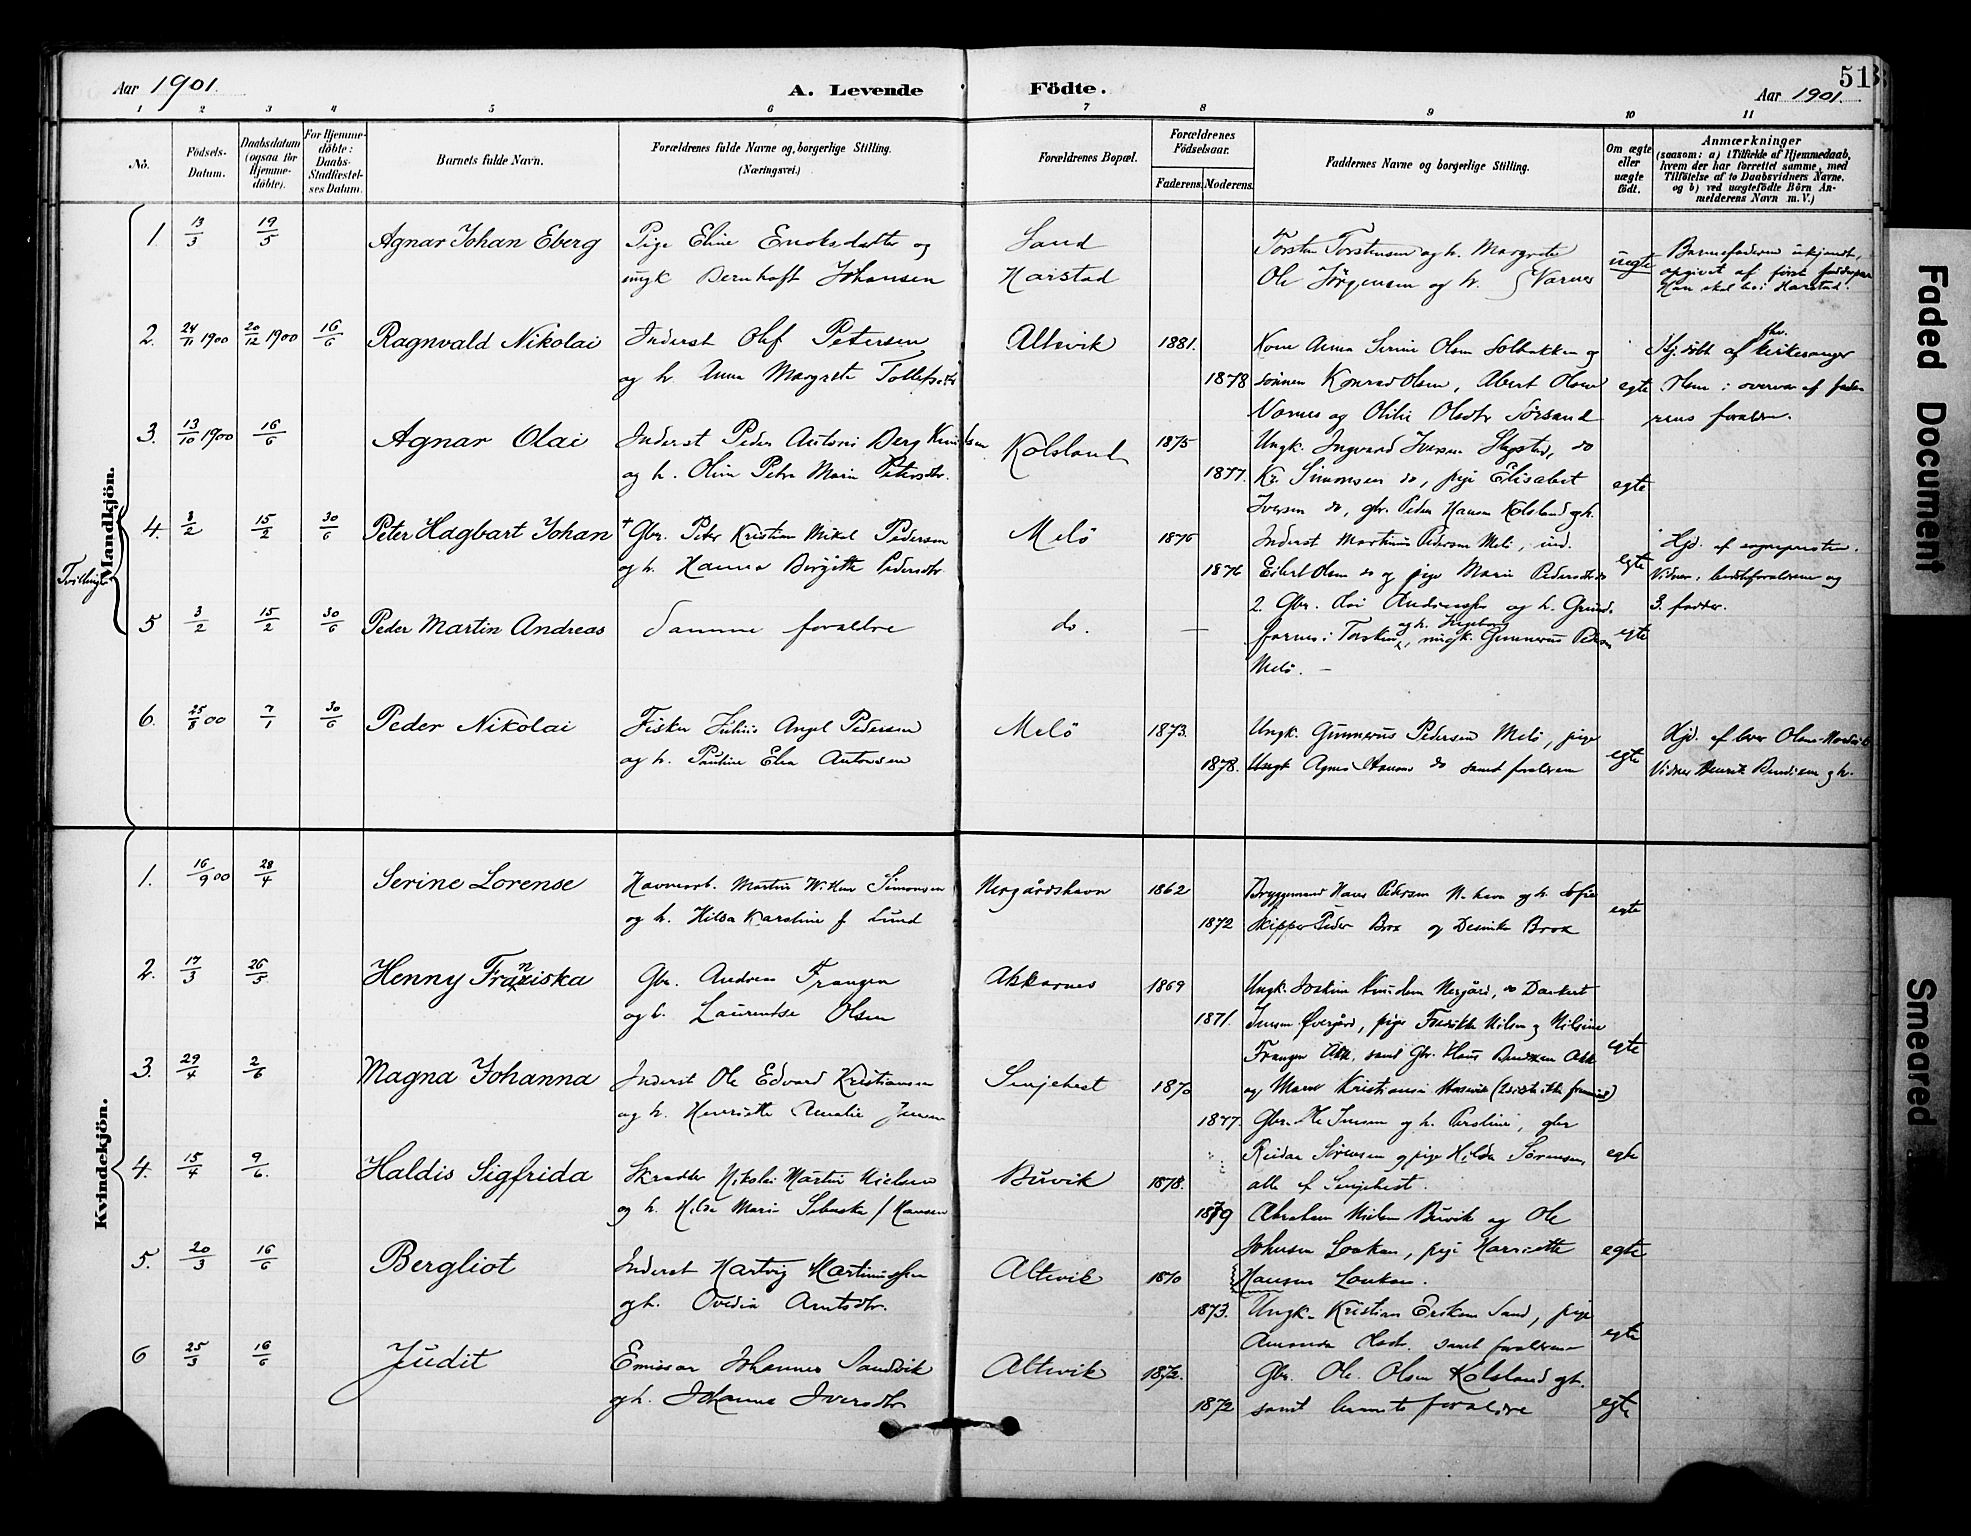 Aar 1901.
A. Levende Födte.
Aar 1901.
51
1 2 3 4 5 6 7 8 9 10 11
Nô.
Födsels-Datum.
Daabsdatum (ogsaa for Hjemme-döbte).
For Hjemme-döbte: Daabs-Stadfæstel-ses Datum.
Barnets fulde Navn.
Forældrenes fulde Navne og borgerlige Stilling. (Næringsvei.)
Forældrenes Bopæl.
Forældrenes Födselsaar.
Faderens. Moderens.
Faddernes Navne og borgerlige Stilling.
Om ægte eller uægte födt.
Anmærkninger
(saasom: a) i Tilfælde af Hjemmedaab, hvem der har forrettet samme, med Tilföielse af to Daabsvidners Navne. og b) ved uægtefödte Börn An-melderens Navn m. V.)
Mandkjön.
1. 13/3 19/5 Agnar Johan Eberg
Pige Eline Enoksdatter og
ungk Bernhoft Johansen
Sand
Harstad
Torsten Torstensen og h. Margrete
Ole Jörgensen og h. } Varnes
uegte
Barnefaderen ukjendt,
opgivet af först
Han skal bo i Harstad.
2. 24/11 1900 20/12 1900 16/6 Ragnvald Nikolai
Inderst Olef Petersen
og h. Anna Margrete Tollefsdtr
Altevik 1881.
1878
Kone Anna Serine Olsen Solbakken og
sönnen Konrad Olsen, Abert Olsen
Varnes og Olilie Olsdtr Sörsand
egte
Hj. döbt af fhv. kirkesanger
Olsen i overvær af fade-
rens forældre.
3. 13/10 1900 16/6 Agnar Olai
Inderst Peder Antoni Berg Knudsen
og h. Oline Petra Marie Petersdtr.
Kolsland 1875
1877.
Ungk. Ingvard Iversen do
Kr. Simonsen do, pige Elisabet
Iversen do, gbr. Peder Hansen Kolsland og h.
egte
Tvillinger
4. 3/2 15/2 30/6 Peter Hagbart Johan
+ Gbr. Peter Kristian Mikal Pedersen
og h. Hanna Birgitte Pedersdtr.
Melö 1876
1876
Inderst Martinus Pedersen Melö, ind.
Eilert Olsen do og pige Marie Pedersdtr do
egte
Hjd. af sognepresten.
Vidner: bedsteforældrene og
3. fadder.
5 3/2 15/2 30/6 Peder Martin Andreas
Samme forældre
do. —
2. Gbr. Andreassen og h. Grund-
farnes i Torsken og h. Ingeborg, ungk. Gunnerus Peders
Melö. —
egte
6. 25/8 00 7/1 30/6 Peder Nikolai
Fisker Julius Angel Pedersen
og h. Pauline Elea Antonsen
Melö 1873.
1878.
Ungk. Gunnerus Pedersen Melö, pige
Agnes Hansen do samt forældrene
egte
Hjd. af Iver Olsen
Vidner Henrik Bendixen og h.
Kvindekjön.
1. 16/9 00 28/4 Serine Lorense
Havnearb. Martin Simonsen
og h. Hilda Karoline f Lund
Nergårdshavn 1862
1872
Bryggemand Hans Pedersen N-havn og h. Sofie
Skipper Peder Brox og Desideria Brox
egte
2. 17/3 26/5 Henny Franziska
Gbr. Andreas Frangen
og h. Laurentse Olsen
Akkarnes 1869
1871.
Ungk. Joakim Knudsen Nergård, do Dankert
Jensen Övergård, pige Fredrikke Nilsen og Nilsine
Frangen Akk. samt Gbr. Klaus Bendixen Akk
og Maren Kristiansen
egte
3. 29/4 2/6 Magna Johanna
Inderst Ole Edvard Kristiansen
og h. Henriette Amalie Jensen
Senjehest 1870
1877.
Gbr. Ole Jensen og h. Peroline, gbr
Reidar Sörensen og pige Hilda Sörensen
alle af Senjehest.
egte
4. 15/4 9/6. Haldis Sigfrida
Skrædder Nikolai Martin Nielsen
og h. Hilda Marie f Hansen
Buvik 1878.
1879
Abraham Nielsen Buvik og Ole
Johnsen Laukan, pige Harriette
Hansen Laukan.
egte
5. 20/3 16/6 Bergliot
Inderst Hartvig Martinussen
og h. Ovedia Arntsdtr.
Altevik 1870
1873.
Ungk. Kristian Eriksen Sand, pige
Amanda Olsdtr. samt forældrene
egte
6 25/3 16/6 Judit
Emissær Johannes Sandvik
og h. Johanna Iversdtr
Altevik 1872.
1872
Gbr. Ole Olsen Kolsland og h.
samt barnets forældre
egte
Faded Document
Smeared